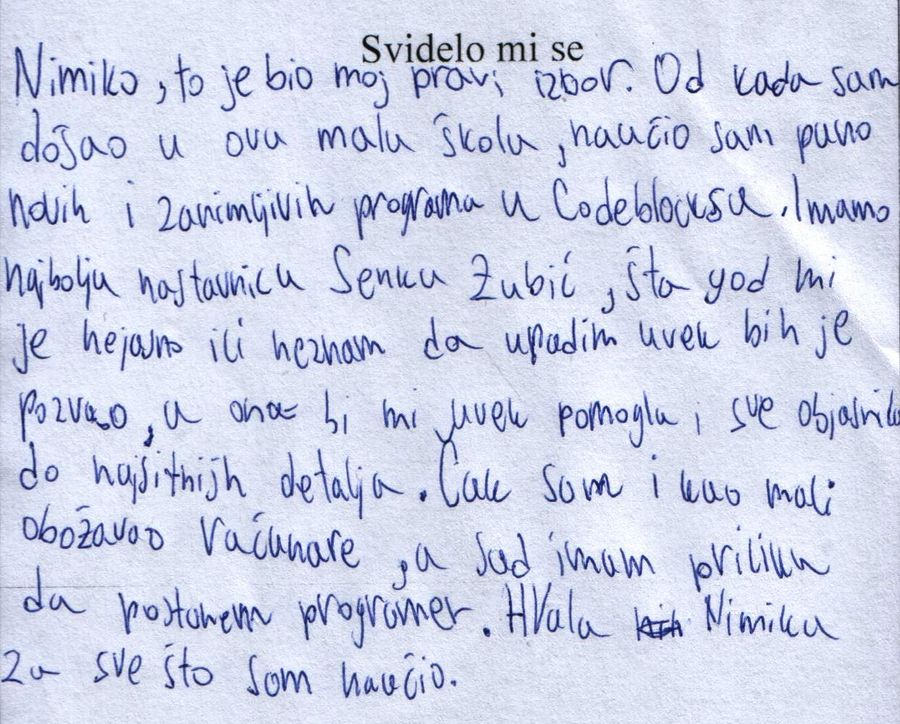 Svidelo mi se
Nimiko, to je bio moj pravi izbor. Od kada sam
došao u ovu malu školu, naučio sam puno
novih i zanimljivih programa u Codeblocksu. Imamo
najbolju nastavnicu Senku Zubić, šta god mi
je nejasno ili neznam da upadim uvek bih je
pozvao, a ona bi mi uvek pomogla i sve objasnila
do najsitnijh detalja. Čak sam i kao mali
obožavao računare, a sad imam priliku
da postanem programer. Hvala Nimiku
za sve što sam naučio.